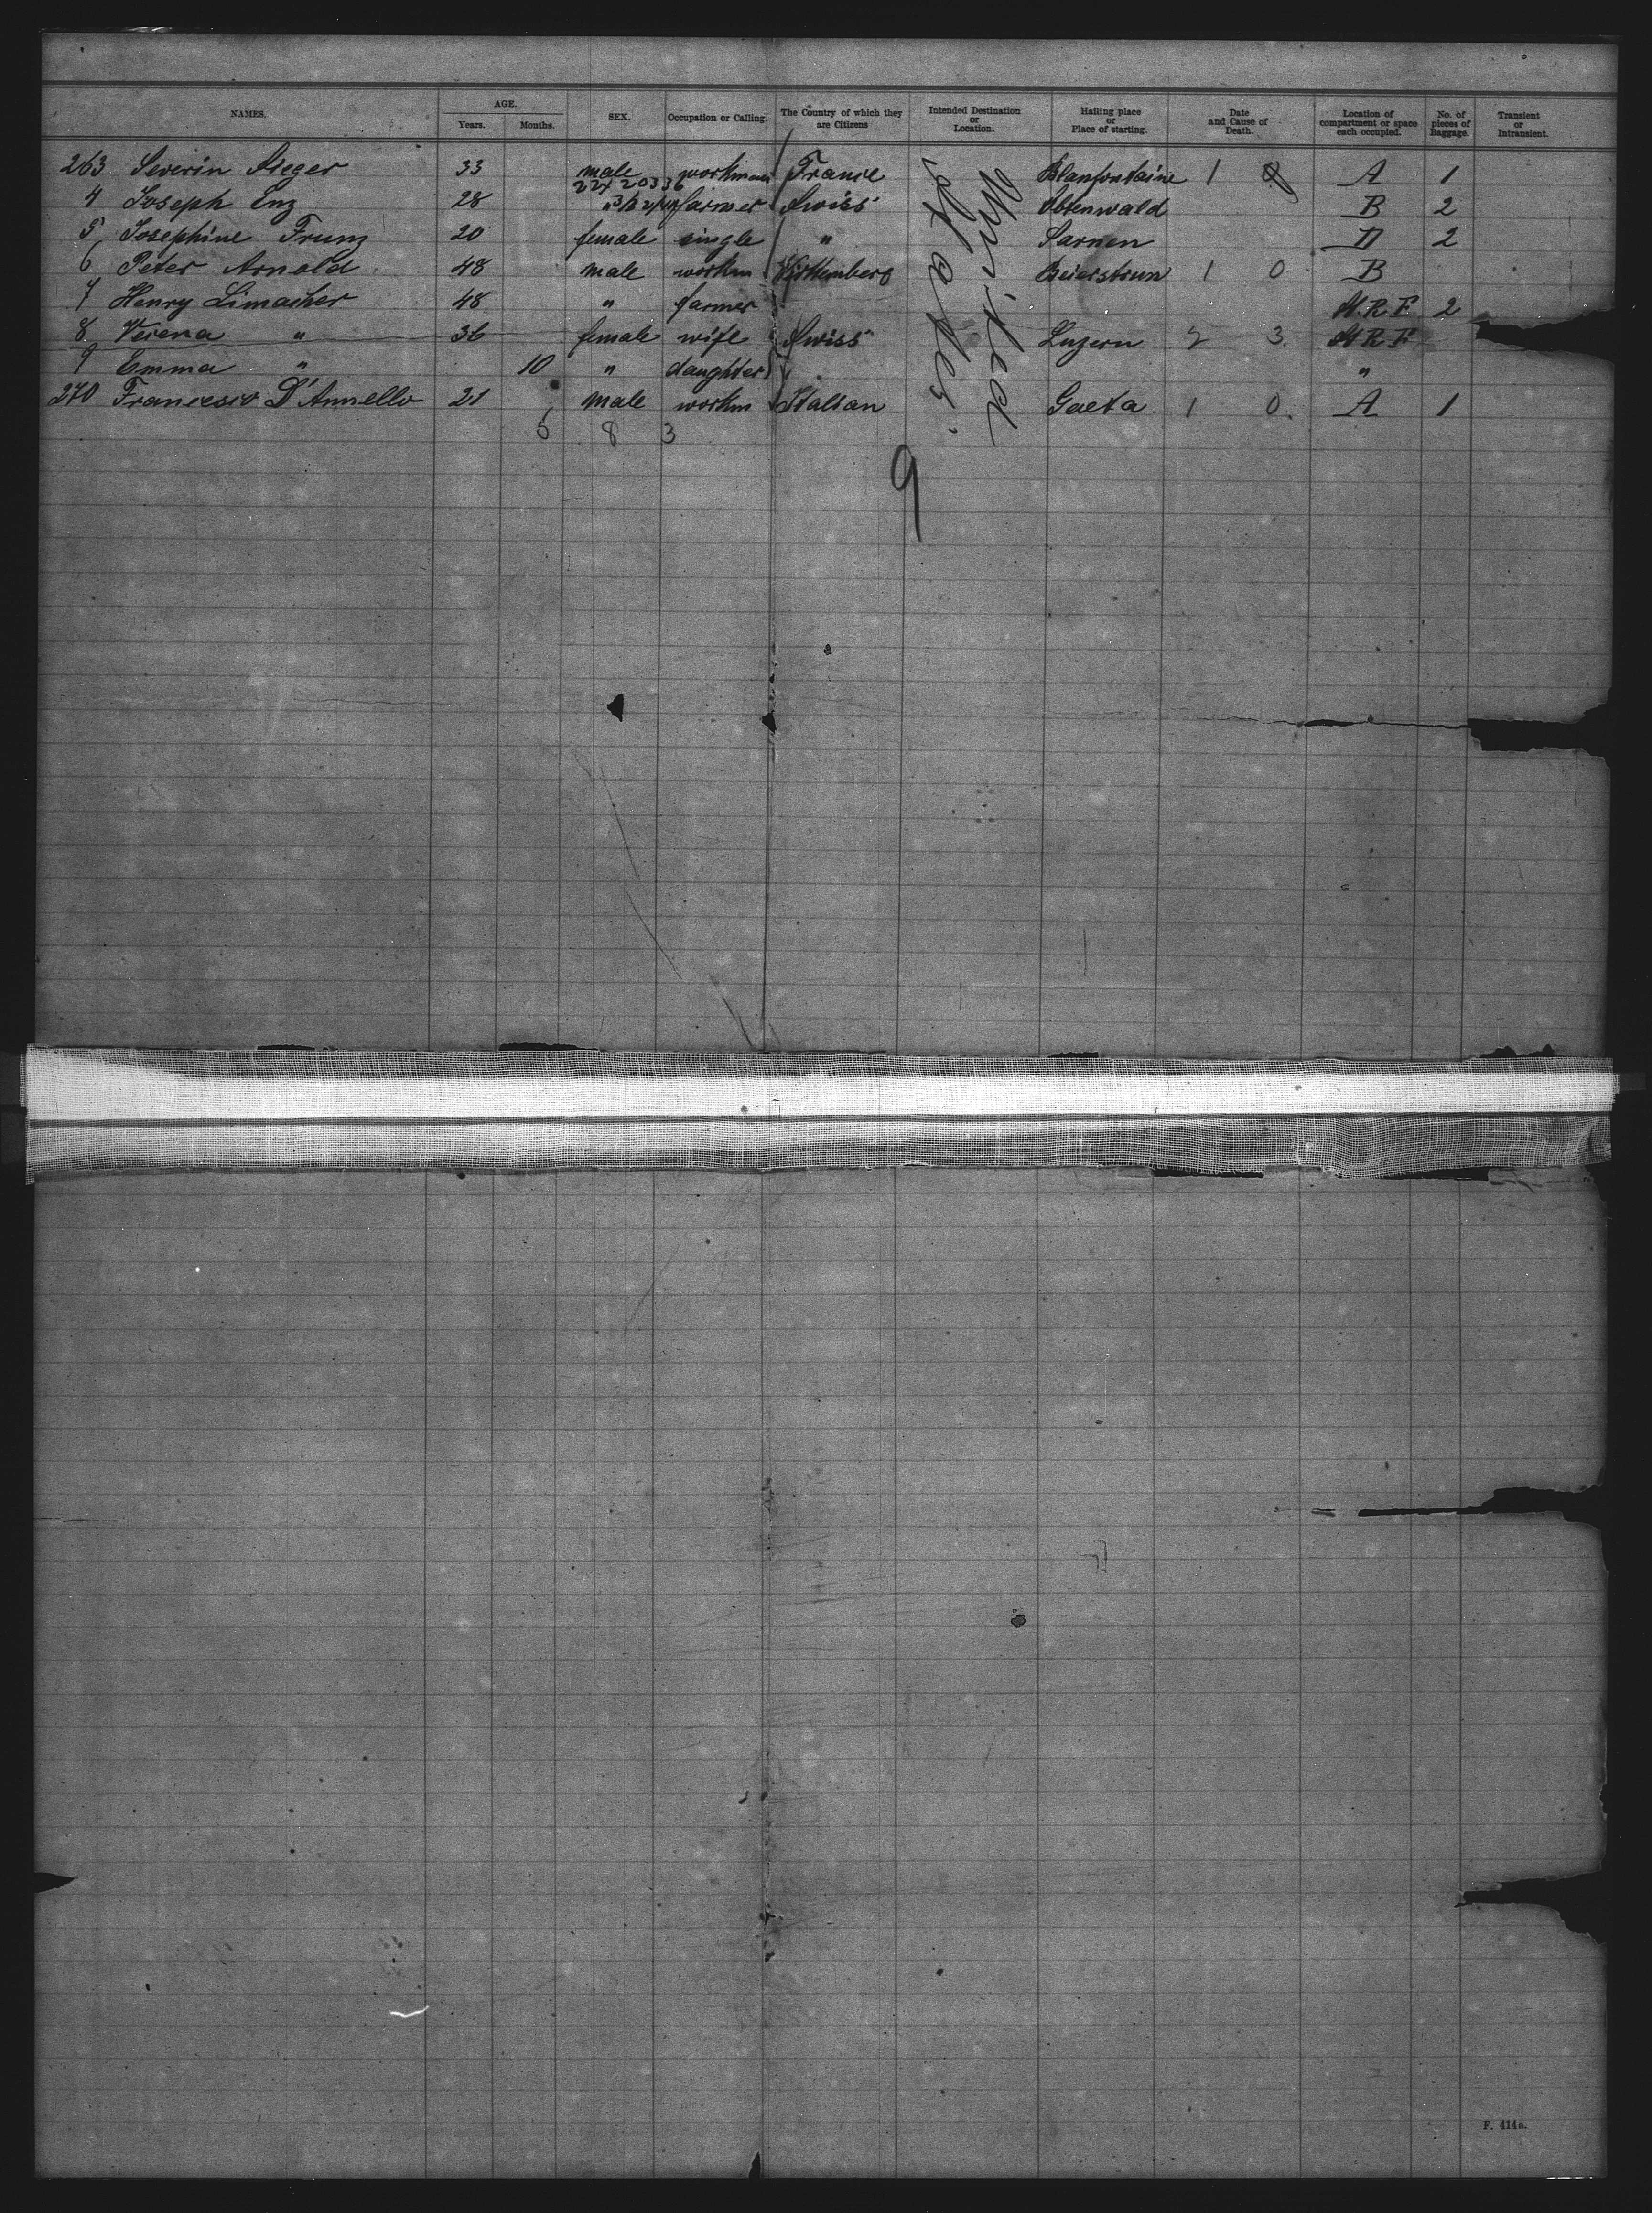 NAMES. AGE. Years. Months. SEX. Occupation or Calling. The Country of which they are Citizens Intended Destination or Location. Hailing place or Place of starting. Date and Cause of Death. Location of compartment or space each occupied. No. of pieces of Baggage. Transient or Intransient.
263 Severin Sieger 33 male workman France Blanfontaine 1 A 1
22x 20336
4 Joseph Enz 28 " farmer Swiss Obtenwald B 2
5 Josephine Frunz 20 female single " Sarnen D 2
6 Peter Arnold 48 male workm Wirttemberg 1 0 B
7 Henry Limacher 48 " farmer St. R. F 2
8 Verena " 36 female wife Swiss Luzern 2 3. St R F
9 Emma " 10 " daughter "
270 Francesco D'Annello 21 male workm Italian Gaeta 1 0. A 1
5 8 3
9
F. 414a.